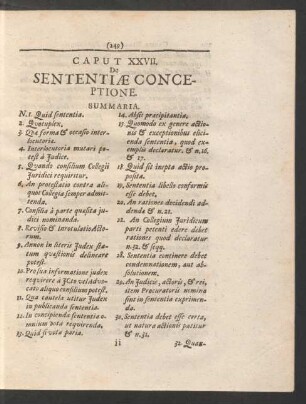 (249)
CAPUT XXVII.
De
SENTENTIÆ CONCE-
PTIONE.
SUMMARIA.
N. 1. Quid sententia.
2. Quotuplex.
3. Qua forma & occasio inter-
locutoria.
4. Interlocutoria mutari po-
test à Judice.
5. Quando consilium Collegii
Juridici requiratur.
6. An protestatio contra ali-
quos Collegia semper admit-
tenda.
7. Consilia à parte quæsita ju-
dici nominanda.
8. Revisio & inrotulatio Acto-
rum.
9. Annon in literis Judex sta-
tum quæstionis delineare
potest.
10. Pro sua informatione judex
requirere à JCto vel advo-
cato aliquo consilium potest.
11. Qua cautela utitur Judex
in publicanda sententia.
12. In concipiendo sententia o-
mnium vota requirenda.
13. Quid si vota paria.
14. Absit præcipitantia.
15. Quomodo ex genere actio-
nis & exceptionibus elici-
enda sententia, quod ex-
emplis declaratur. & n. 16.
& 17.
18. Quid si inepta actio pro-
posita.
19. Sententia libello conformis
esse debet.
20. An rationes decidendi ad-
dendæ & n. 21.
22. An Collegium Juridicum
parti petenti edere debet
rationes quod declaratur
n. 32. & seqq.
28. Sententia continere debet
condemnationem, aut ab-
solutionem.
29. An Judicii, actoris, & rei,
item Procuratoris nomina
sint in sententia exprimen-
da.
30. Sententia debet esse certa,
ut natura actionis patitur
& n. 31.
Ii
32. Quan-